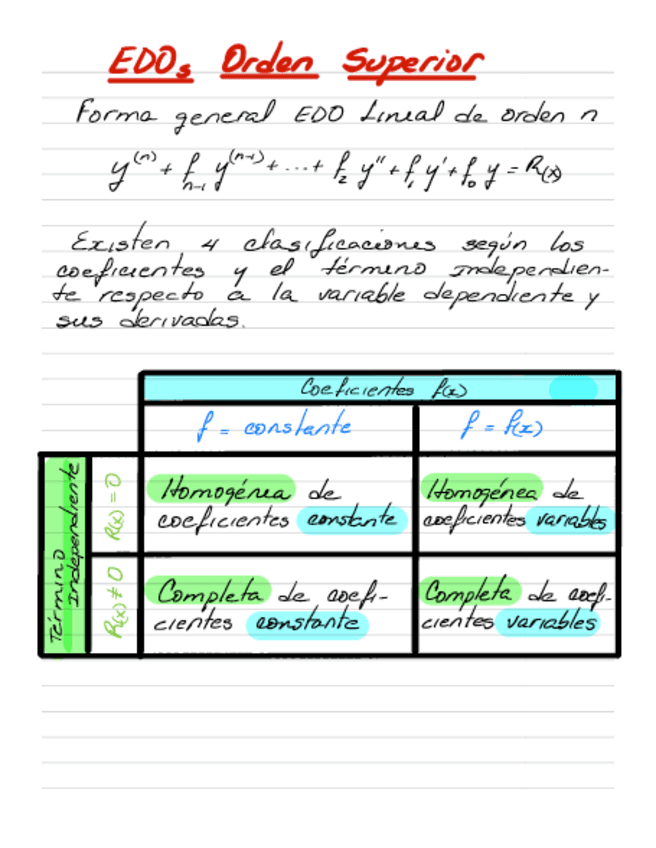 EDOs Orden Superior
Forma general EDO Lineal de orden n
y⁽ⁿ⁾ + fₙ₋₁ y⁽ⁿ⁻¹⁾ + ... + f₂ y'' + f₁ y' + f₀ y = R(x)
Existen 4 clasificaciones según los
coeficientes y el término independien-
te respecto a la variable dependiente y
sus derivadas.
Coeficientes f(x)
f = constante
f = f(x)
Término
Independiente
R(x) = 0
Homogénea de
coeficientes constante
Homogénea de
coeficientes variables
R(x) ≠ 0
Completa de coefi-
cientes constante
Completa de coefi-
cientes variables